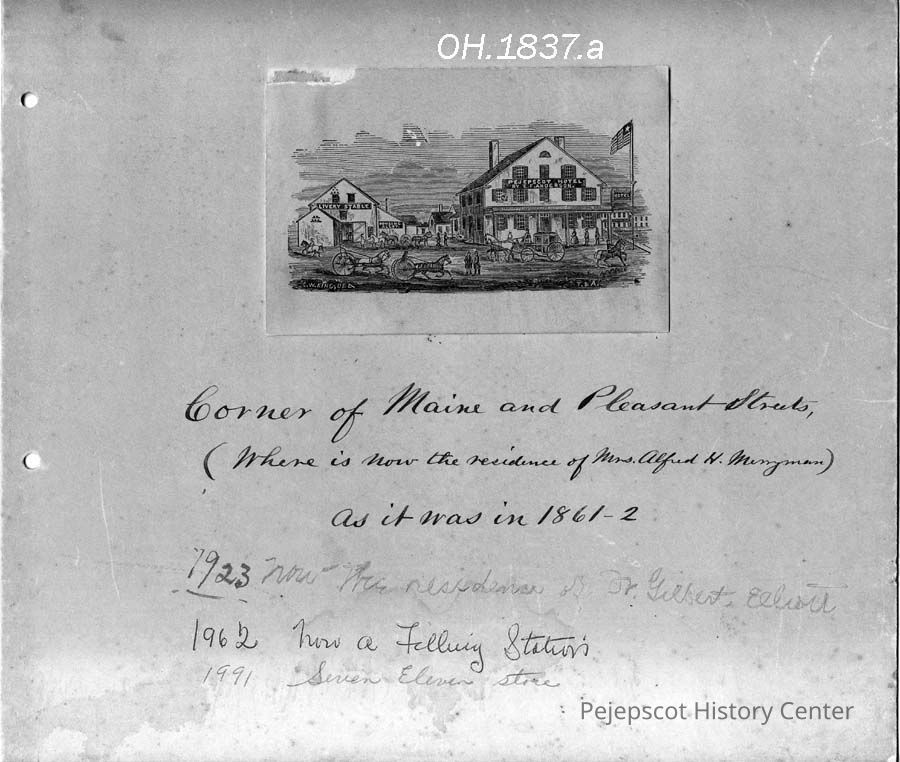 OH.1837.a
LIVERY STABLE
PEJEPSCOT HOTEL
ANDERSON.
HOTEL
Corner of Maine and Pleasant Streets,
(Where is now the residence of Mrs. Alfred H. Merryman)
As it was in 1861-2
1923 now the residence of Dr. Gilbert Elliott
1962 Now a Filling Station
1991 Seven Eleven store
Pejepscot History Center